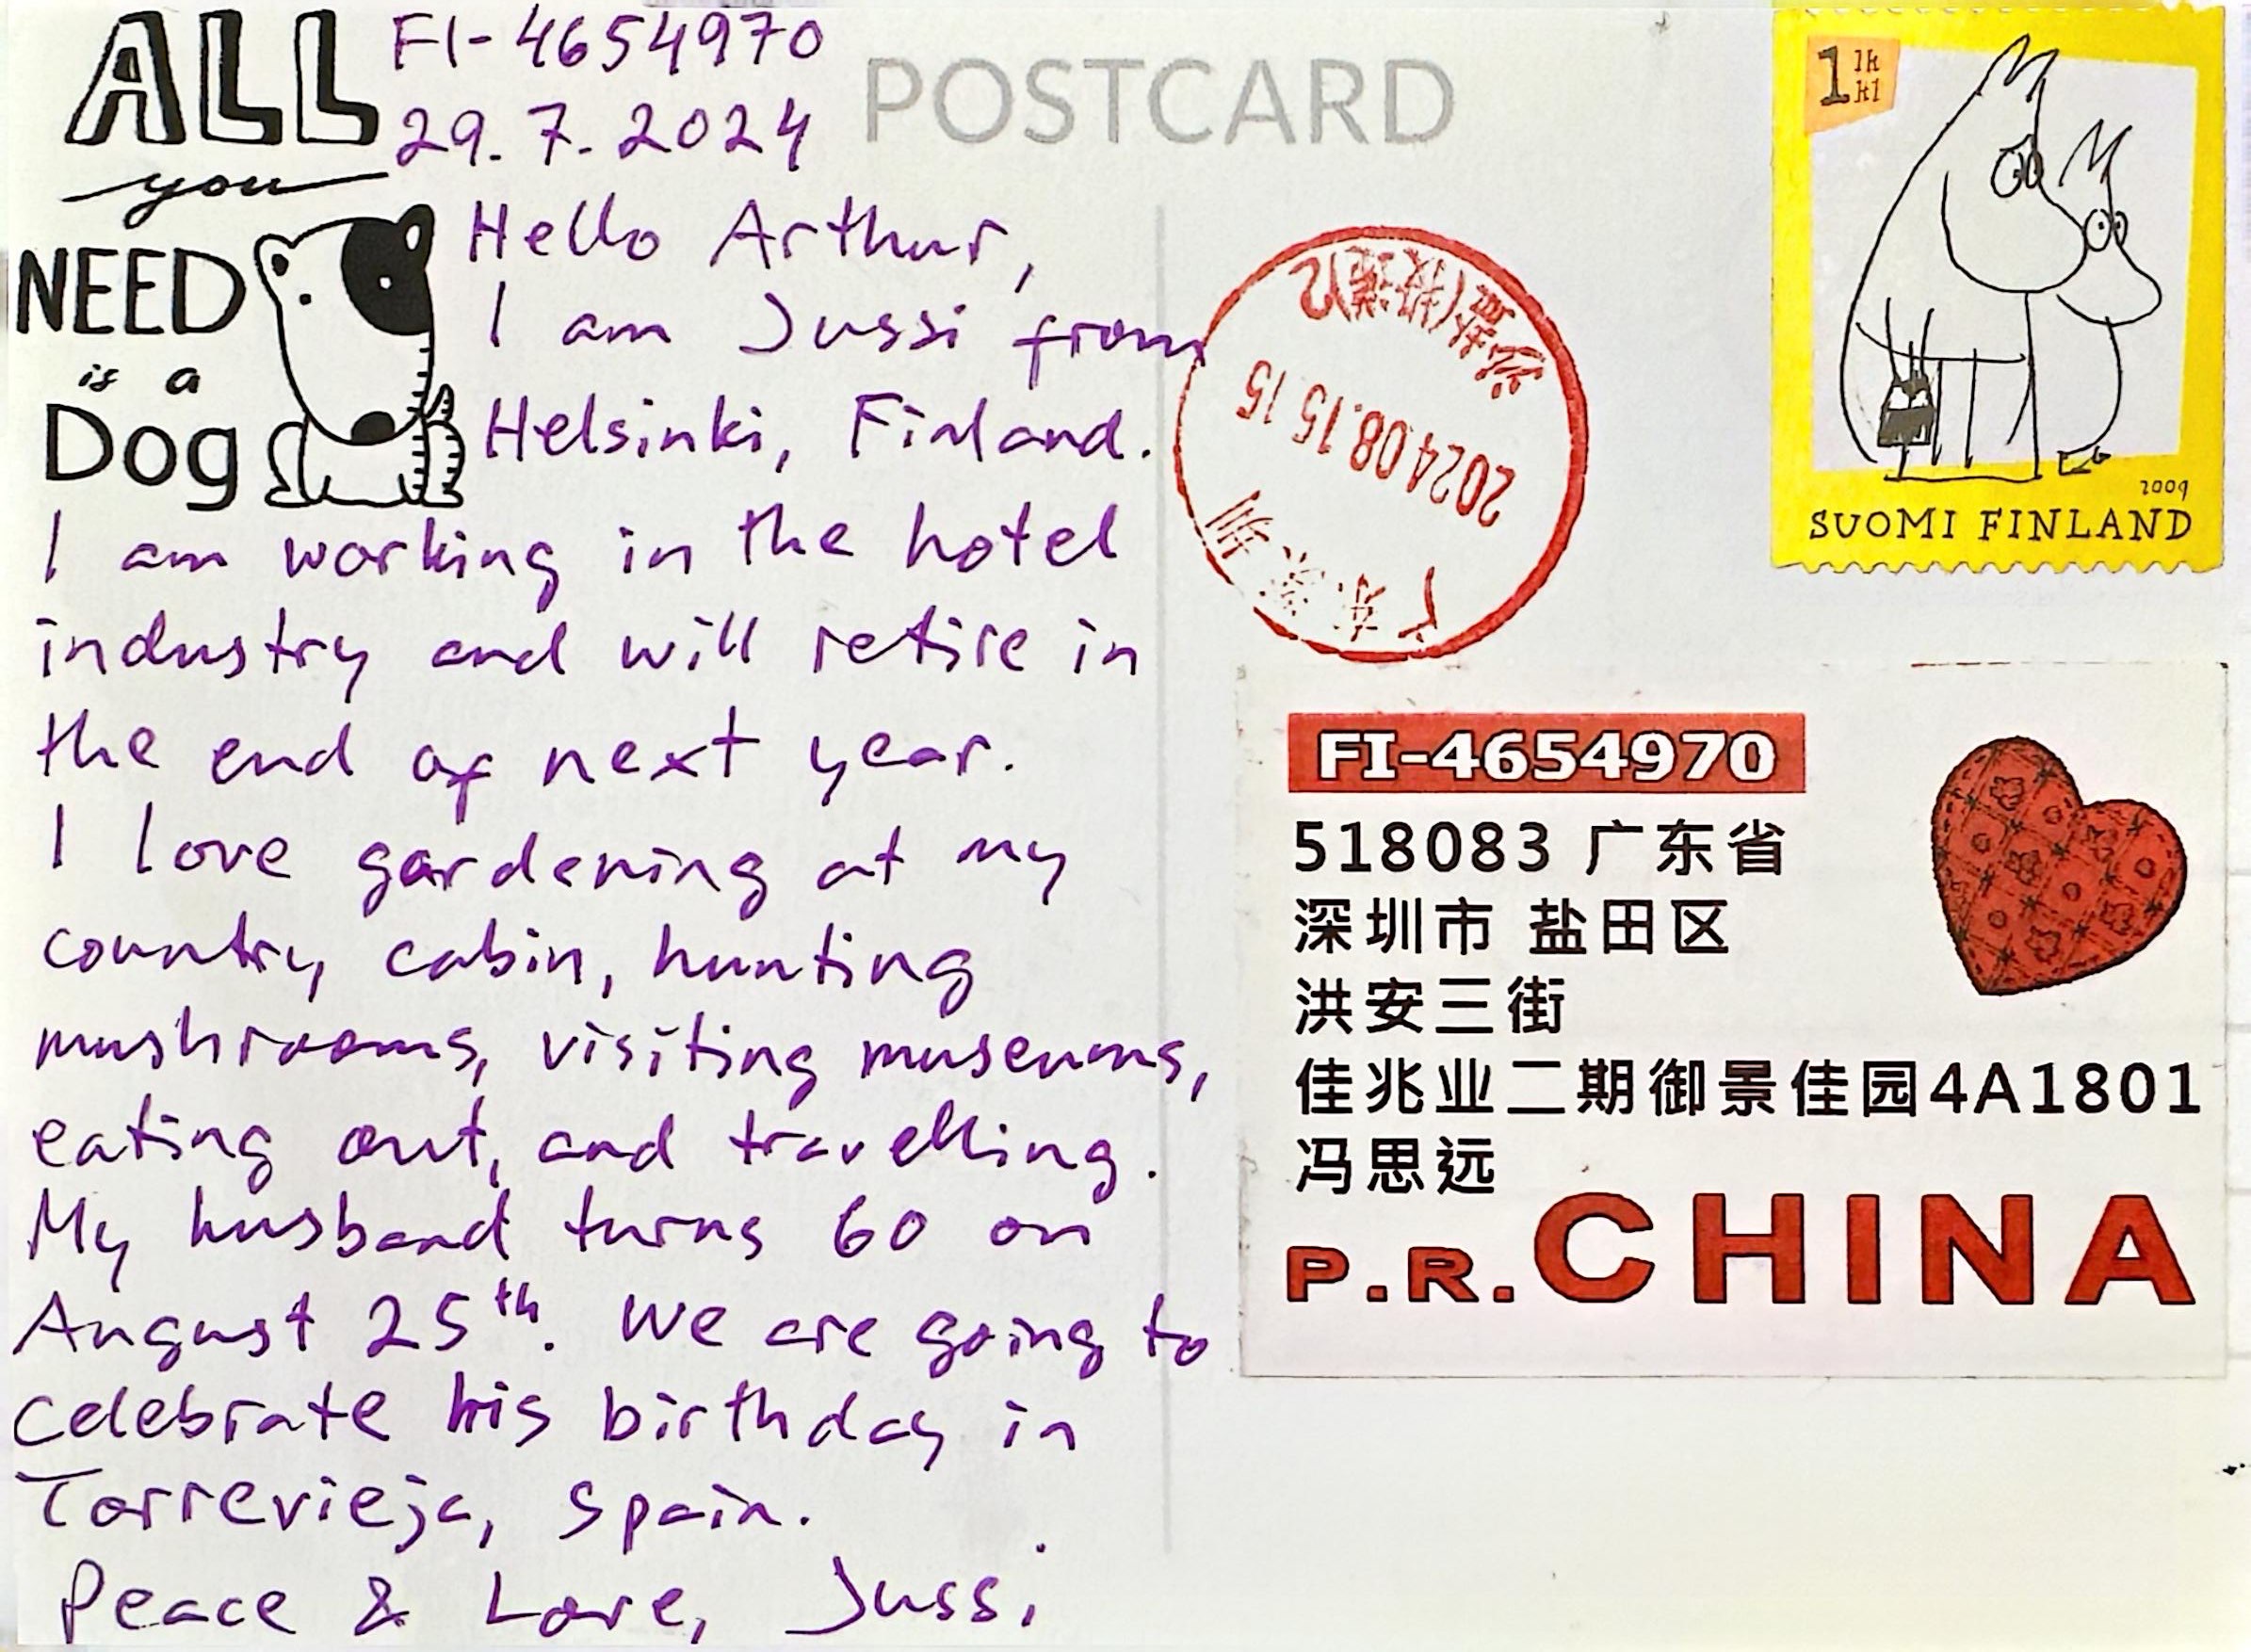 ALL
you
NEED
is a
Dog
FI-4654970
29.7.2024
Hello Arthur,
I am Jussi from
Helsinki, Finland.
I am working in the hotel
industry and will retire in
the end of next year.
I love gardening at my
country cabin, hunting
mushrooms, visiting museums,
eating out, and travelling.
My husband turns 60 on
August 25th. We are going to
celebrate his birthday in
Torrevieja, Spain.
Peace & Love, Jussi
POSTCARD
1 lk
kl
2009
SUOMI FINLAND
广东深圳
2024.08.15 15
FI-4654970
518083 广东省
深圳市 盐田区
洪安三街
佳兆业二期御景佳园4A1801
冯思远
P.R.CHINA